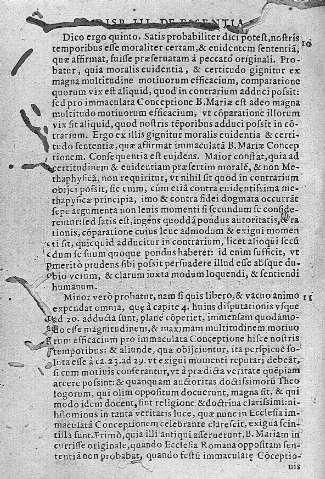 DISP. III. DE ESSENTIA
Dico ergo quinto. Satis probabiliter dici potest, nostris 10
temporibus esse moraliter certam, & euidentem sententiã,
quæ affirmat, fuisse præseruatam à peccato originali. Pro-
batur, quia moralis euidentia, & certitudo gignitur ex
magna multitudine motiuorum efficacium, comparatione
quorum vix est aliquid, quod in contrarium adduci possit:
sed pro immaculata Conceptione B. Mariæ est adeo magna
multitudo motiuorum efficacium, vt cõparatione illorum
vix sit aliquid, quod nostris tẽporibus adduci possit in cõ-
trarium. Ergo ex illis gignitur moralis euidentia & certi-
tudo sententiæ, quæ affirmat immaculatã B. Mariæ Concep
tionem. Consequentia est euidens. Maior constat, quia ad
certitudinem & euidentiam præsertim moralẽ, & non Me-
thaphysicã, non requiritur, vt nihil sit quod in contrarium
objici possit, sic enim, cùm etiã contra euidentissima me-
thaphysicæ principia, imo & contra fidei dogmata occurrãt
sæpe argumenta non leuis momenti si secundùm se conside-
rentur: sed satis est, ingens quoddã pondus autoritatis, & ra
tionis, cõparatione cuius leue admodum & exigui momen
ti sit, quicquid adducitur in contrarium, licet alioqui secũ
dum se suum quoque pondus haberet: id enim sufficit, vt
meritò prudens sibi possit persuadere illud esse absque du-
bio verum, & clarum iuxta modum loquendi, & sentiendi
humanum.
Minor verò probatur, nam si quis libero, & vacuo animo 11
expendat omnia, quæ à capite 4. huius disputationis vsque
ad 20. adducta sunt, planè cõperiet, immensam quodámo-
do esse magnitudinem, & maximam multitudinem motiuo
rum efficacium pro immaculata Conceptione hisce nostris
temporibus: & aliunde, quæ obijciuntur, ita perspicuè so-
luta esse à ca. 23. ad 29. vt exigui momenti reputari debeãt,
si cum motiuis conferantur, vt à prædicta veritate quẽpiam
arcere possint: & quanquam auctoritas doctissimorũ Theo
logorum, qui olim oppositum docuerunt, magna sit, & qui
modo idem docent, sint religione & doctrina clarissimi: ni-
hilominus in tanta veritatis luce, quæ nunc in Ecclesia im-
maculatã Conceptionem celebrante clarescit, exigua scin-
tilla sunt. Primò, quia illi antiqui asseruerunt, B. Mariam in
currisse originale, quando Ecclesia Romana oppositam sen-
tentiã non probabat, quando festũ immaculatæ Cõceptio-
nis